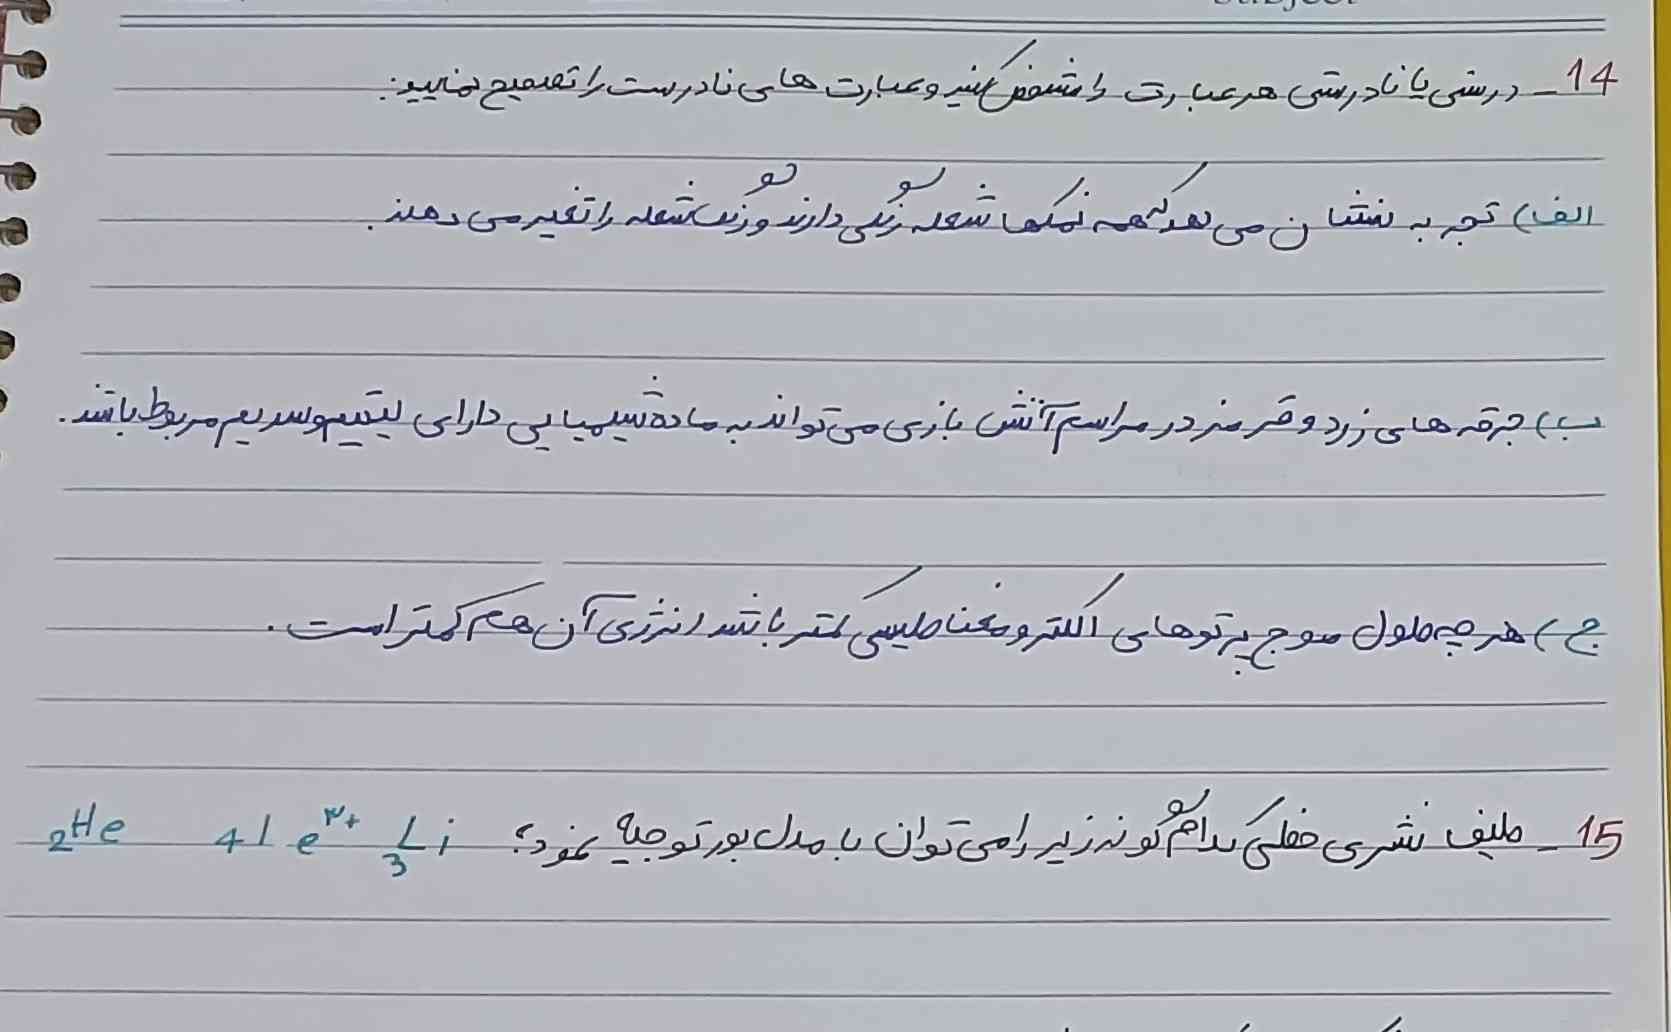 14_ درستی یا نادرستی هر عبارت را مشخص کنید و عبارت های نادرست را تصحیح نمایید:
الف) تجربه نشان می دهد که همه نمکها شعله رنگی دارند و رنگ شعله را تغیر می دهند.
ب) جرقه های زرد و قرمز در مراسم آتش بازی می تواند به ماده شیمیایی دارای لیتیم و سدیم مربوط باشد.
ج) هر چه طول موج پرتوهای الکترومغناطیسی کمتر باشد انرژی آن هم کمتر است.
15_ طیف نشری خطی کدام گونه زیر را می توان با مدل بور توجیه نمود؟ 3Li 4Le³⁺ 2He